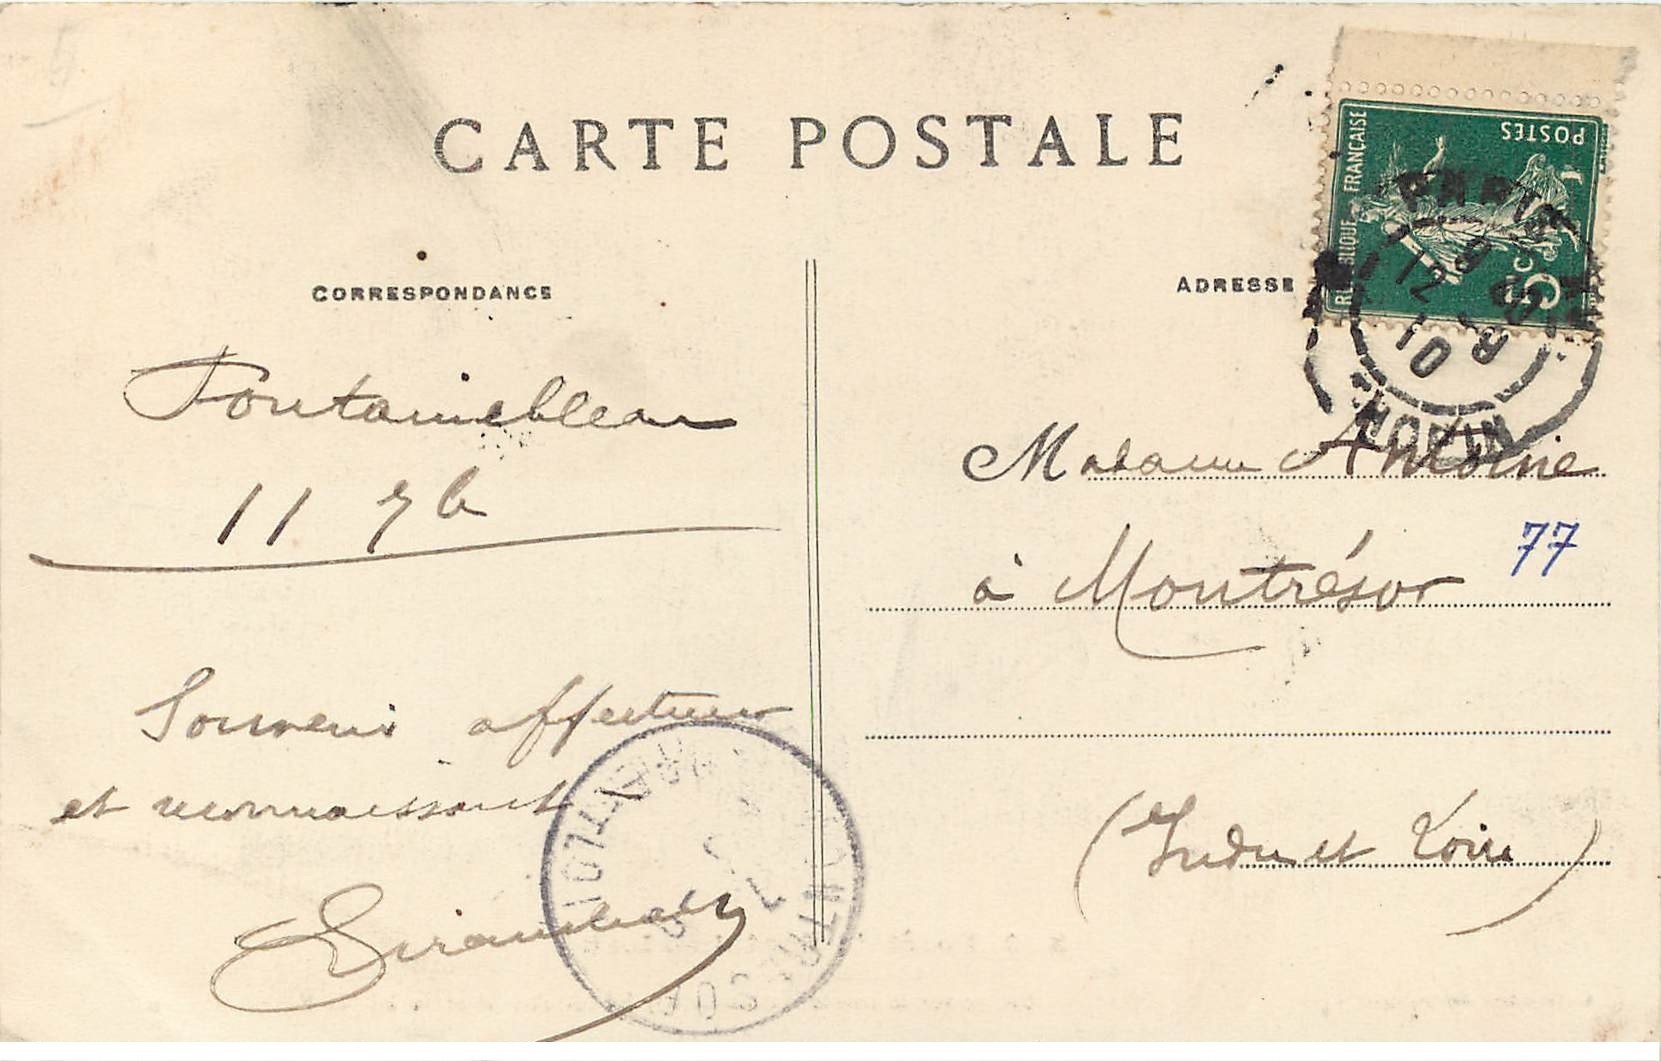 CARTE POSTALE
CORRESPONDANCE
Fontainebleau
11 7b
Souvenir affectueux
et reconnaissant
ADRESSE
RÉPUBLIQUE FRANÇAISE
POSTES
5c
Madame Antoine
à Montrésor
77
(Indre et Loire)